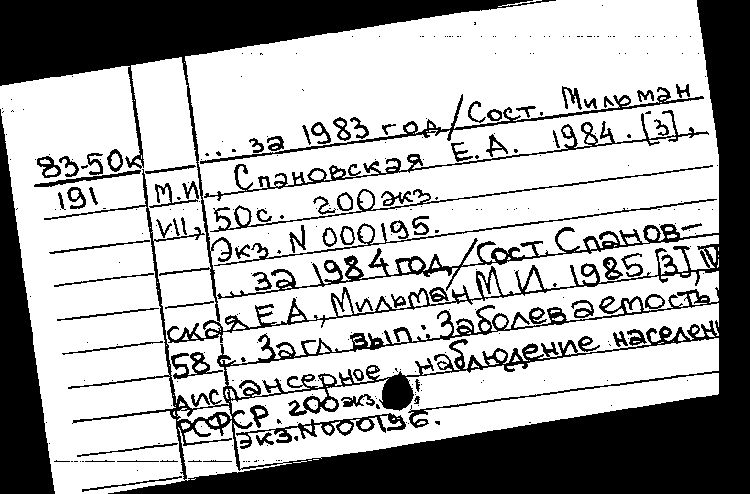 ... за 1983 год / Сост. Мильман
83-50к
191
М.И., Спановская Е.А. 1984. [3],
VII, 50с. 200экз.
Экз. N 000195.
... за 1984 год / Сост. Спанов-
ская Е.А., Мильман М.И. 1985. [3], IV
58 с. Загл. вып.: Заболеваемость
диспансерное наблюдение населен
РСФСР. 200 экз.
экз. N 000196.